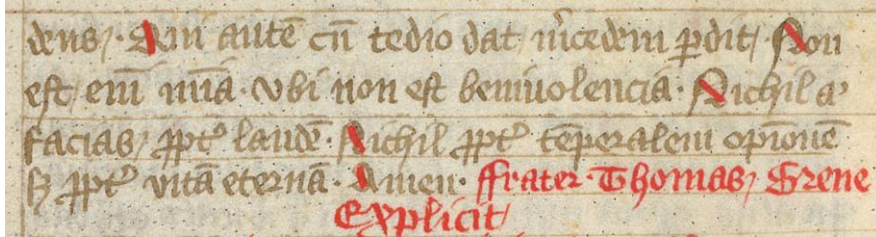 dens / Qui autē cū tedio dat m̄cedem ꝑdit / Non
est em̄ mīa · vbi non est beniuolencia · Nichil a᷒
facias / ꝓpt᷒ laudē · Nichil ꝓpt᷒ tēperalem opīonē
sꝫ ꝓpt᷒ vitā eternā · Amen · ffrater Thomas / Grene
Explicit /